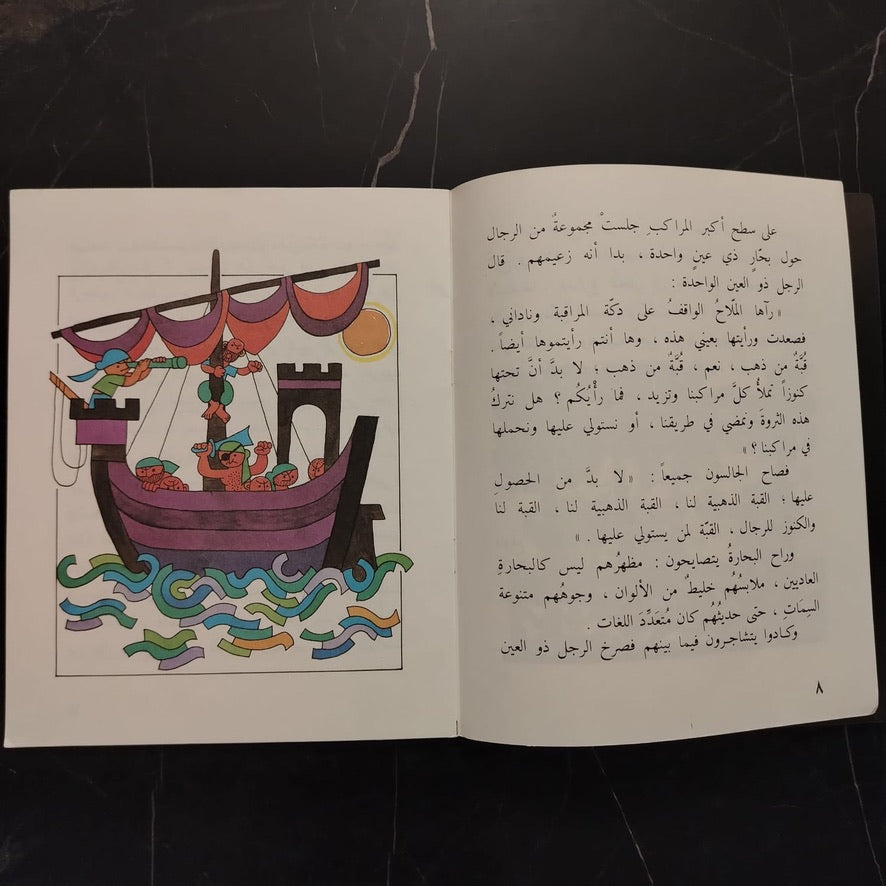 على سطح أكبر المراكبِ جلستْ مجموعةٌ من الرجال
حول بحّارٍ ذي عينٍ واحدة ، بدا أنه زعيمهم . قال
الرجل ذو العين الواحدة :
« رآها الملّاحُ الواقفُ على دكّة المراقبة وناداني ،
فصعدت ورأيتها بعيني هذه ، وها أنتم رأيتموها أيضاً .
قُبَّةٌ من ذهب ، نعم ، قُبَّةٌ من ذهب ؛ لا بدَّ أنَّ تحتها
كنوزاً تملأُ كلَّ مراكبنا وتزيد ، فما رأْيُكُم ؟ هل نتركُ
هذه الثروةَ ونمضي في طريقنا ، أو نستولي عليها ونحملها
في مراكبنا ؟ »
فصاح الجالسون جميعاً : « لا بدَّ من الحصولِ
عليها ؛ القبة الذهبية لنا ، القبة الذهبية لنا ، القبة لنا
والكنوز للرجال ، القبّة لمن يستولي عليها . »
وراح البحارةُ يتصايحون : مظهرُهم ليس كالبحارةِ
العاديين ، ملابسُهُم خليطٌ من الألوان ، وجوهُهُم متنوعة
السِمَاتِ ، حتى حديثُهُم كان مُتَعَدِّدَ اللغات .
وكادوا يتشاجرون فيما بينهم فصرخ الرجل ذو العين
٨